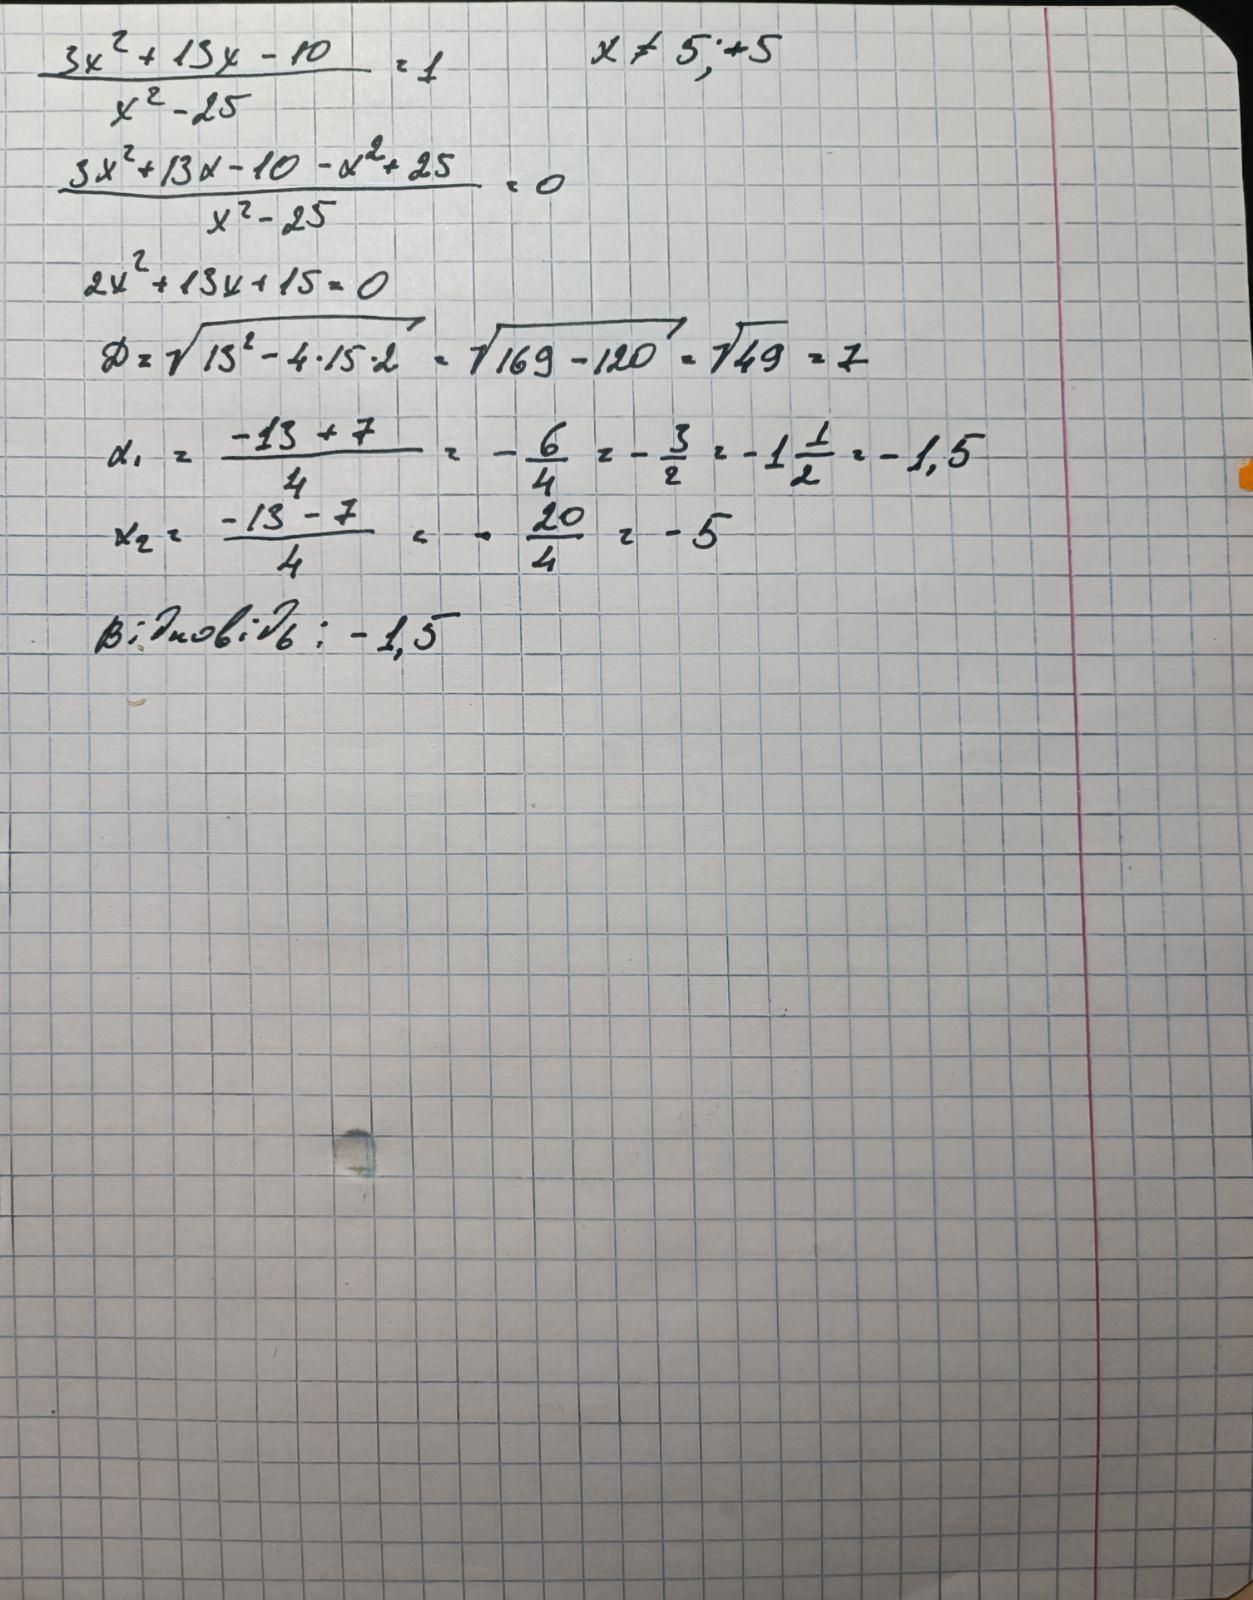 (3x² + 13x - 10)/(x² - 25) = 1    x ≠ 5; +5
(3x² + 13x - 10 - x² + 25)/(x² - 25) = 0
2x² + 13x + 15 = 0
D = √(13² - 4·15·2) = √(169 - 120) = √49 = 7
x₁ = (-13 + 7)/4 = -6/4 = -3/2 = -1 1/2 = -1,5
x₂ = (-13 - 7)/4 = -20/4 = -5
Відповідь: -1,5